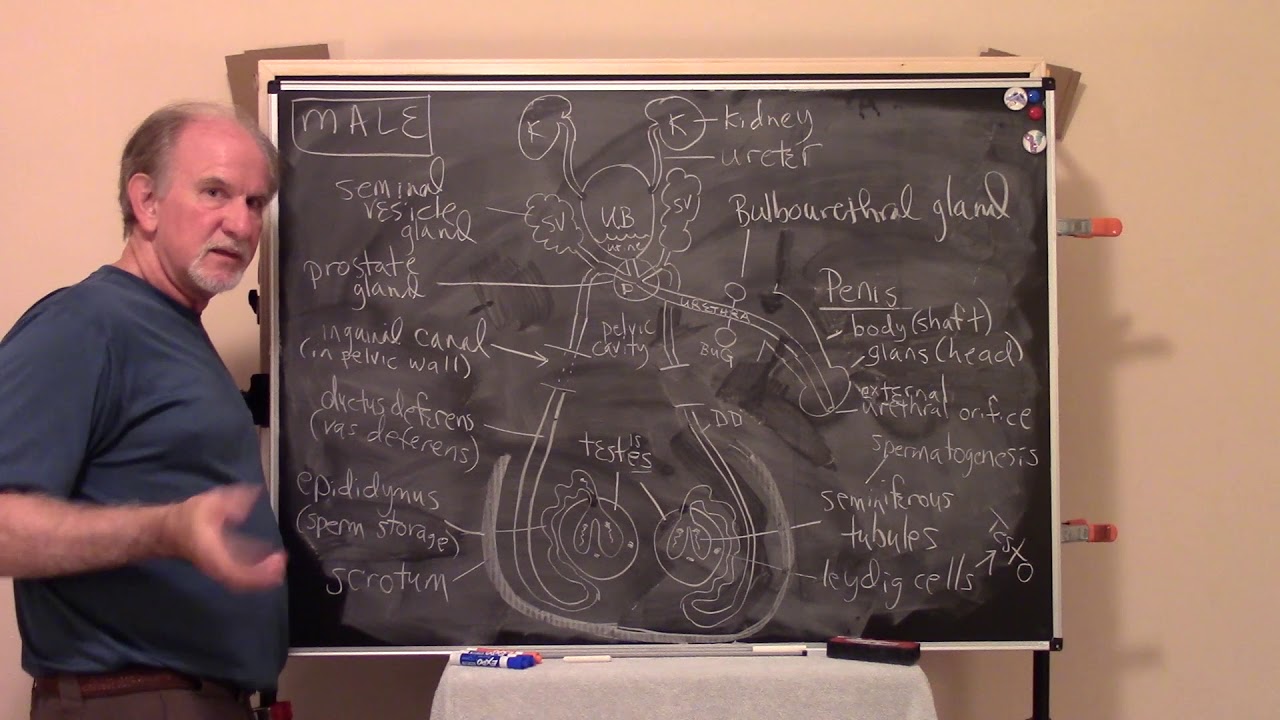 MALE
K
K
kidney
ureter
seminal
vesicle
gland
SV
UB
urine
SV
Bulbourethral gland
prostate
gland
P
URETHRA
Penis
body (shaft)
glans (head)
external
urethral orifice
inguinal canal
(in pelvic wall)
pelvic
cavity
BUG
ductus deferens
(vas deferens)
DD
testes
is
spermatogenesis
epididymus
(sperm storage)
seminiferous
tubules
scrotum
leydig cells
EXPO